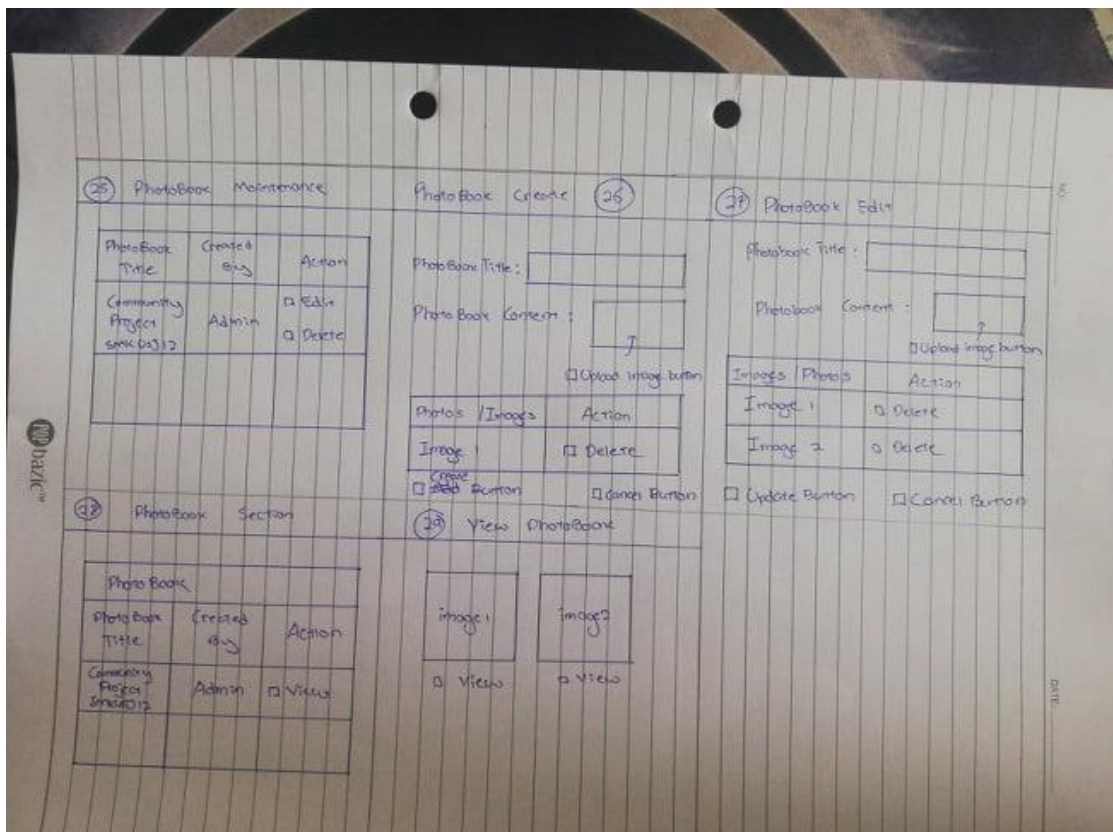 25 PhotoBook Maintenance
PhotoBook Title
Created By
Action
Community Project
Admin
Edit
Delete
PhotoBook Create 26
PhotoBook Title :
PhotoBook Content :
Upload image button
Photo's / Images
Action
Image 1
Delete
Create Button
Cancel Button
27 PhotoBook Edit
Photobook Title :
Photobook Content :
Upload image button
Images / Photo's
Action
Image 1
Delete
Image 2
Delete
Update Button
Cancel Button
28 PhotoBook Section
Photo Book
PhotoBook Title
Created By
Action
Community Project
Admin
View
29 View PhotoBook
image 1
image 2
View
View
POP bazic
NO.
DATE: